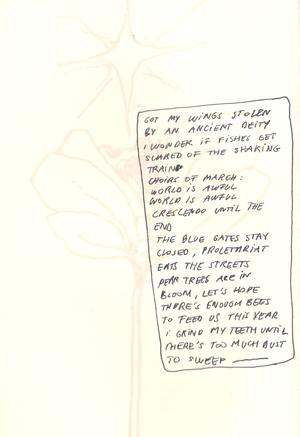 GOT MY WINGS STOLEN
BY AN ANCIENT DEITY
I WONDER IF FISHES GET
SCARED OF THE SHAKING
TRAIN
CHOIRS OF MARCH:
WORLD IS AWFUL
WORLD IS AWFUL
CRESCENDO UNTIL THE
END
THE BLUE GATES STAY
CLOSED, PROLETARIAT
EATS THE STREETS
PEAR TREES ARE IN
BLOOM, LET'S HOPE
THERE'S ENOUGH BEES
TO FEED US THIS YEAR
I GRIND MY TEETH UNTIL
THERE'S TOO MUCH DUST
TO SWEEP